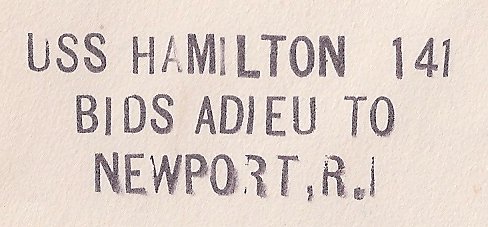 USS HAMILTON 141
BIDS ADIEU TO
NEWPORT,R.I